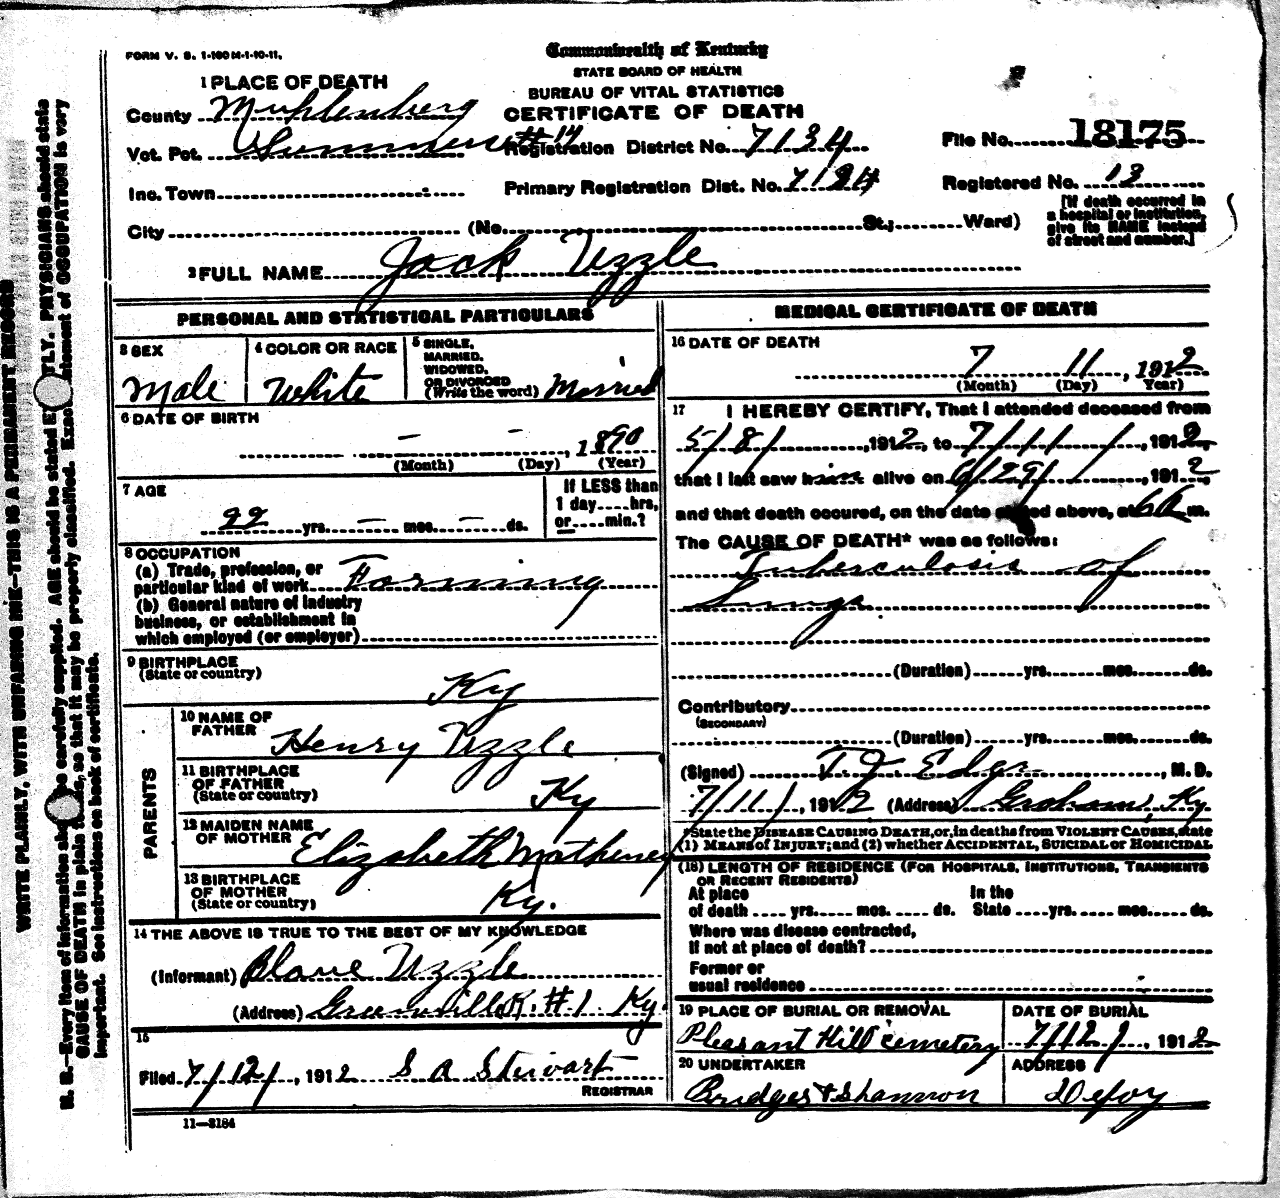 FORM V. S. 1-160 M-1-10-11.
Commonwealth of Kentucky
STATE BOARD OF HEALTH
BUREAU OF VITAL STATISTICS
CERTIFICATE OF DEATH
1 PLACE OF DEATH
County Muhlenberg
Vot. Pct. #14
Registration District No. 7134
File No. 18175
Inc. Town
Primary Registration Dist. No.
Registered No. 13
City (No. St.; Ward)
[If death occurred in a hospital or institution, give its NAME instead of street and number.]
2 FULL NAME Jack Uzzle
PERSONAL AND STATISTICAL PARTICULARS
3 SEX
Male
4 COLOR OR RACE
White
5 SINGLE, MARRIED, WIDOWED, OR DIVORCED (Write the word) Married
6 DATE OF BIRTH
— — , 1890
(Month) (Day) (Year)
7 AGE
22 yrs. — mos. — ds.
If LESS than 1 day....hrs, or....min.?
8 OCCUPATION
(a) Trade, profession, or
particular kind of work Farming
(b) General nature of industry
business, or establishment in
which employed (or employer)
9 BIRTHPLACE
(State or country)
Ky
PARENTS
10 NAME OF FATHER
Henry Uzzle
11 BIRTHPLACE OF FATHER
(State or country) Ky
12 MAIDEN NAME OF MOTHER
Elizabeth Matheney
13 BIRTHPLACE OF MOTHER
(State or country) Ky.
14 THE ABOVE IS TRUE TO THE BEST OF MY KNOWLEDGE
(Informant) Uzzle
(Address) Greenville R. #1 Ky.
15
Filed 7/12/, 1912 S A Stewart
REGISTRAR
11—3184
MEDICAL CERTIFICATE OF DEATH
16 DATE OF DEATH
7 11 , 1912
(Month) (Day) Year)
17 I HEREBY CERTIFY, That I attended deceased from
5/8/ ,1912, to 7/11/ ,1912,
that I last saw him alive on 6/29/ ,1912,
and that death occured, on the date stated above, at 6 A m.
The CAUSE OF DEATH* was as follows:
Tuberculosis of
Lungs
(Duration) yrs. mos. ds.
Contributory
(SECONDARY)
(Duration) yrs. mos. ds.
(Signed) T. J. , M. D.
7/11/, 1912 (Address) Graham, Ky
*State the DISEASE CAUSING DEATH, or, in deaths from VIOLENT CAUSES, state
(1) MEANS of INJURY; and (2) whether ACCIDENTAL, SUICIDAL or HOMICIDAL
(18) LENGTH OF RESIDENCE (FOR HOSPITALS, INSTITUTIONS, TRANSIENTS
OR RECENT RESIDENTS)
At place In the
of death yrs. mos. ds. State yrs. mos. ds.
Where was disease contracted,
if not at place of death?
Former or
usual residence
19 PLACE OF BURIAL OR REMOVAL
Pleasant Hill cemetery
DATE OF BURIAL
7/12/, 1912
20 UNDERTAKER
Bridges & Shannon
ADDRESS
Depoy
WRITE PLAINLY, WITH UNFADING INK—THIS IS A PERMANENT RECORD
N. B.—Every item of information should be carefully supplied. AGE should be stated EXACTLY. PHYSICIANS should state
CAUSE OF DEATH in plain terms, so that it may be properly classified. Exact statement of OCCUPATION is very
important. See instructions on back of certificate.